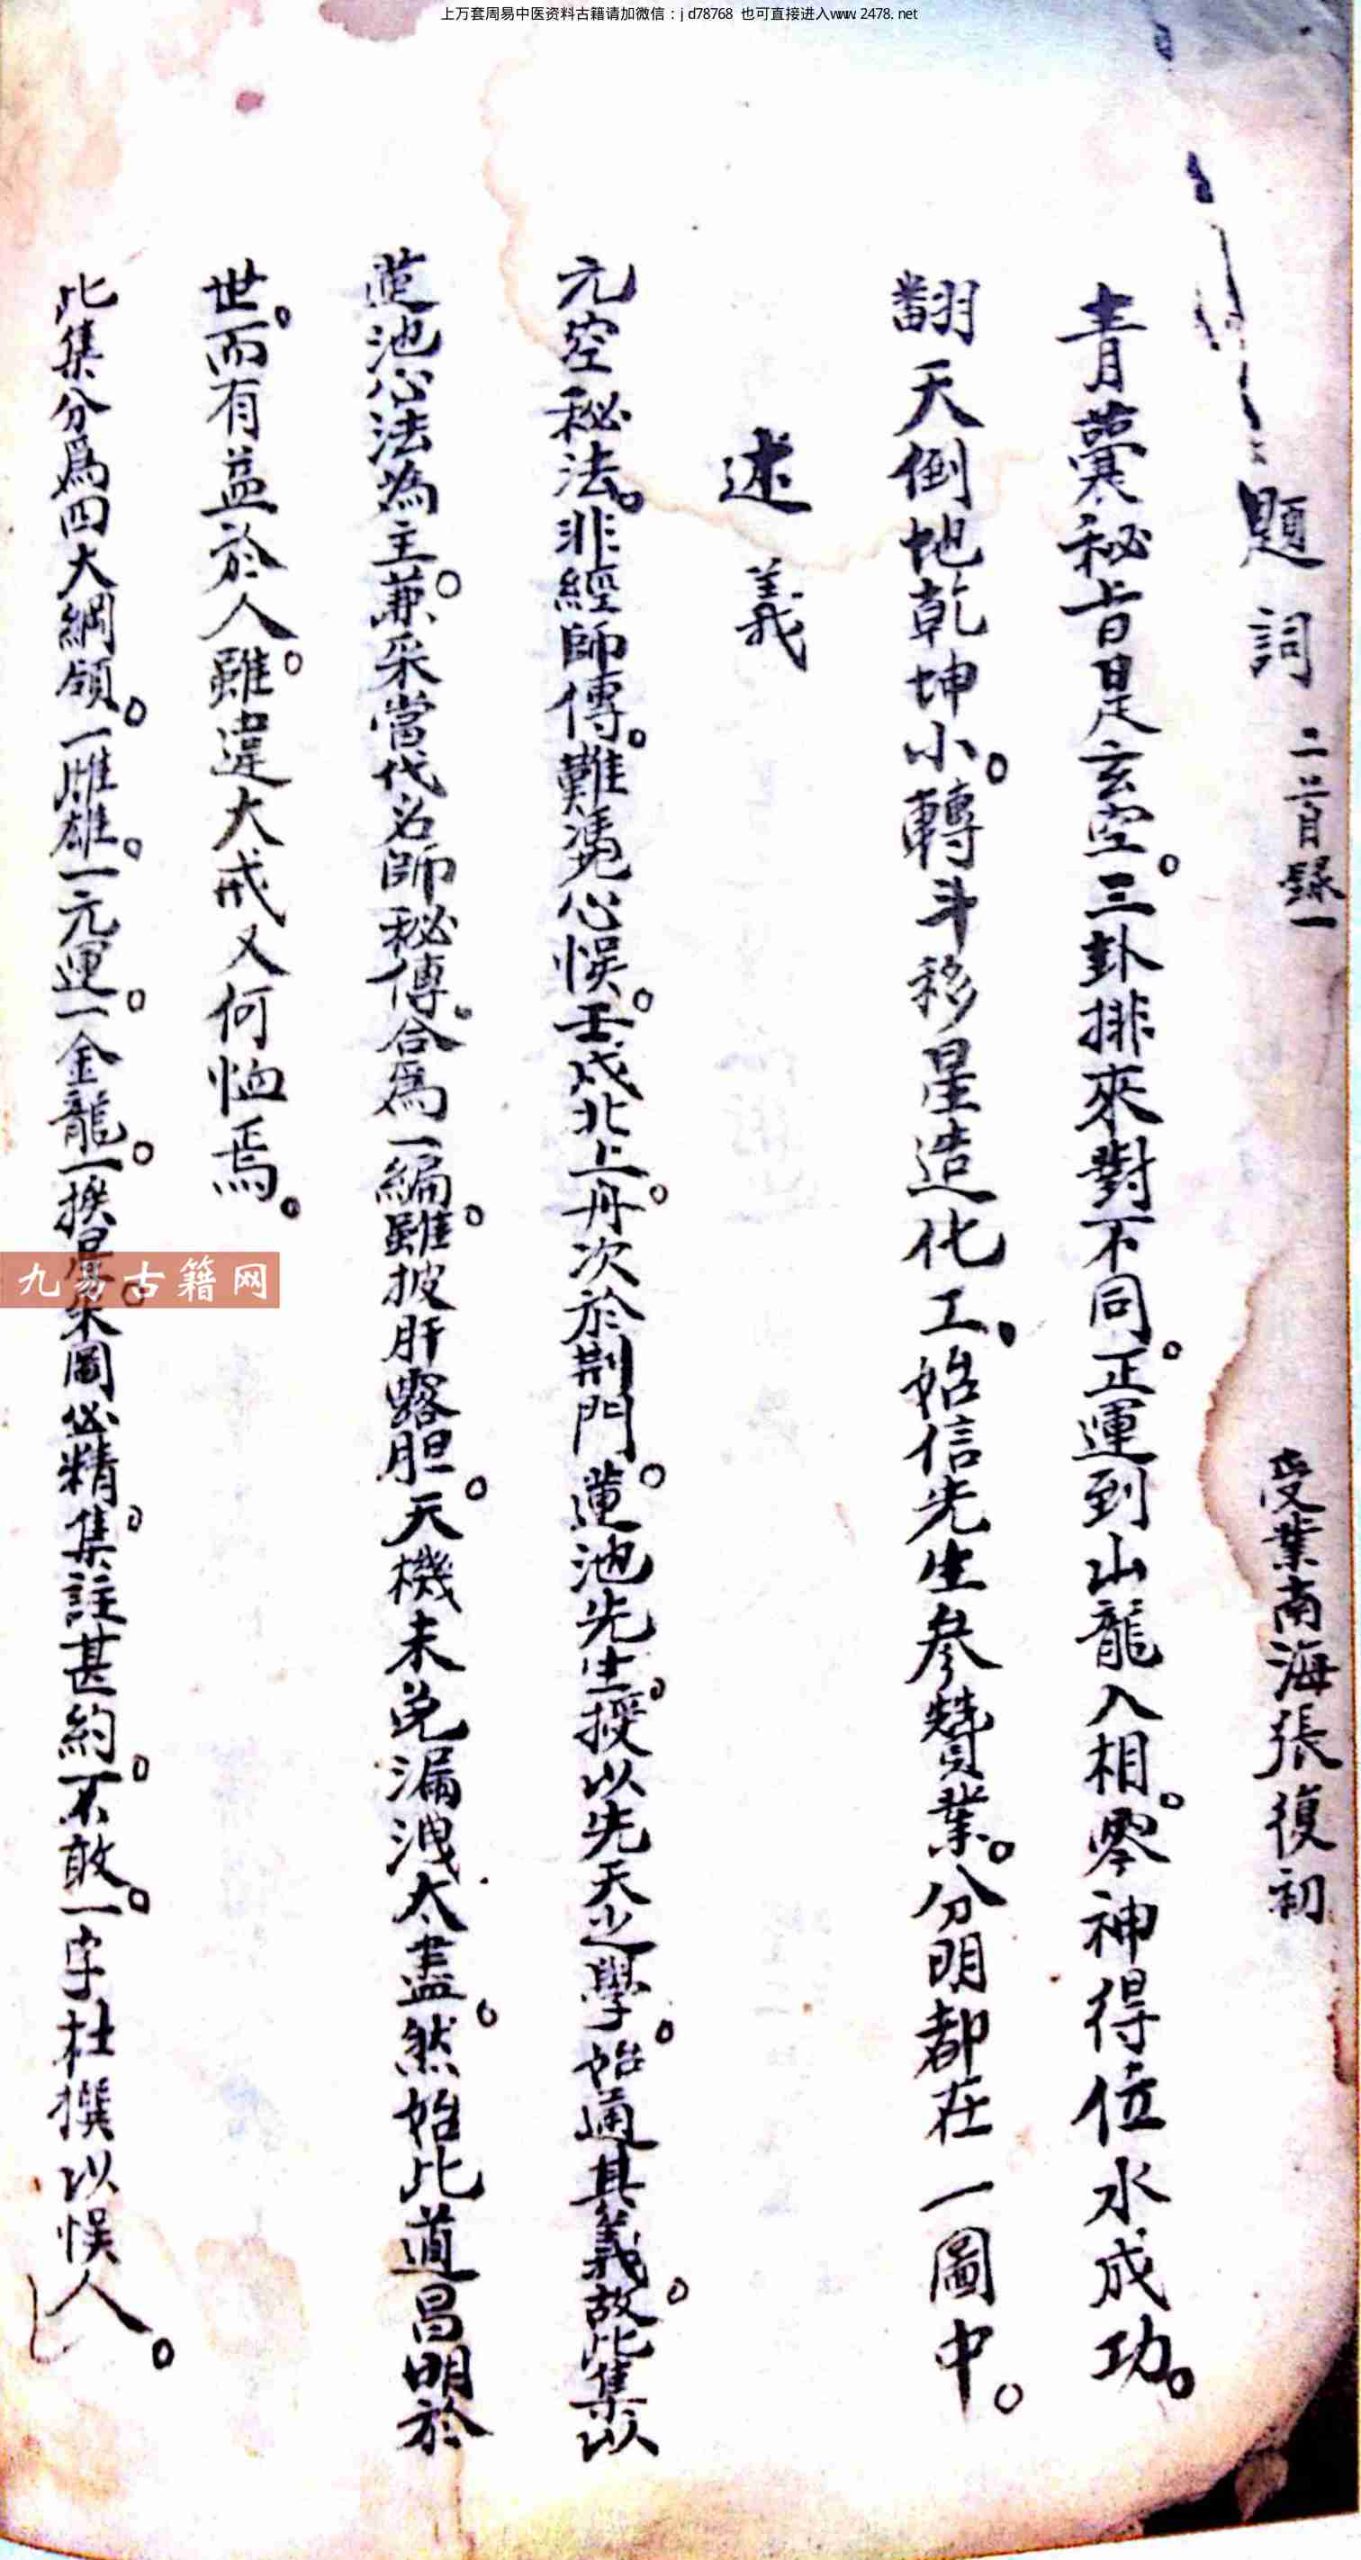 上万套周易中医资料古籍请加微信：jd78768 也可直接进入www.2478.net
題詞 二首錄一 受業南海張復初
青囊秘旨是玄空。三卦排來對不同。正運到山龍入相。零神得位水成功。
翻天倒地乾坤小。轉斗移星造化工。始信先生參贊業。分明都在一圖中。
述義
元空秘法。非經師傳。難凴心悮。壬戌北上。舟次於荆門。蓮池先生。授以先天之學。始通其義。故此集以
蓮池心法為主。兼采當代名師秘傳。合爲一編。雖披肝露胆。天機未免漏洩太盡。然始此道昌明於
世。而有益於人。雖違大戒又何恤焉。
此集分爲四大綱領。一雌雄。一元運。一金龍。一挨星。采圖必精。集註甚約。不敢。一字杜撰以悮人。
九易古籍网